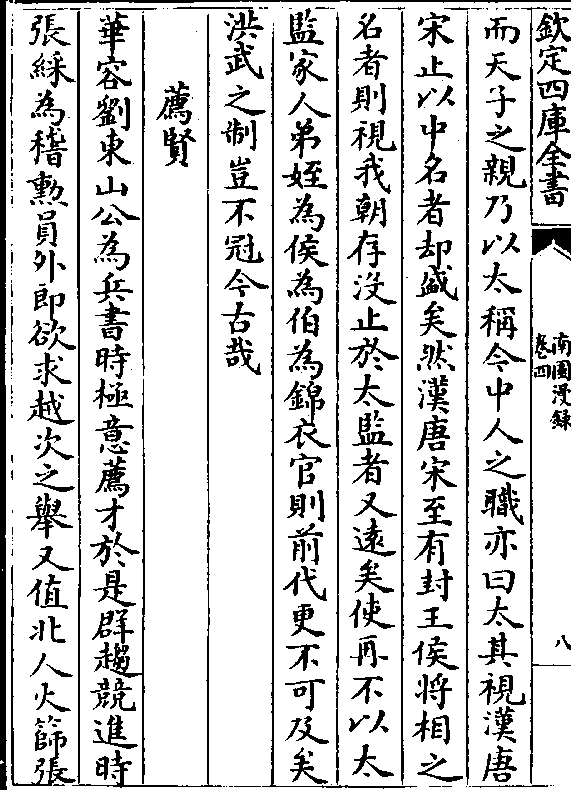 欽定四庫全書
南園漫錄
卷四
八
而天子之親乃以太稱今中人之職亦曰太其視漢唐
宋止以中名者却盛矣然漢唐宋至有封王侯將相之
名者則視我朝存没止於太監者又遠矣使再不以太
監家人弟姪為侯為伯為錦衣官則前代更不可及矣
洪武之制豈不冠今古哉
薦賢
華容劉東山公為兵書時極意薦才於是群趨競進時
張綵為稽勲員外即欲求越次之舉又值北人火篩張